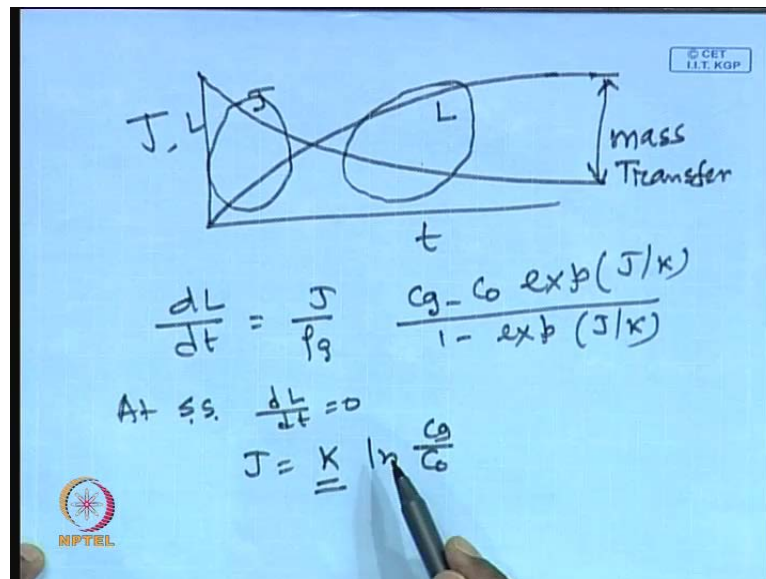 © CET
I.I.T. KGP
J, L
J
L
mass
Transfer
t
dL/dt = J/ρg  Cg - Co exp(J/K) / 1 - exp(J/K)
At s.s. dL/dt = 0
J = K ln Cg/Co
NPTEL